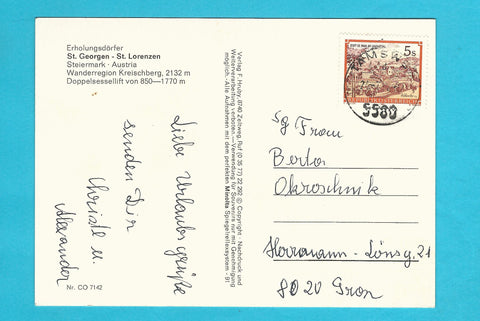 Erholungsdörfer
St. Georgen - St. Lorenzen
Steiermark · Austria
Wanderregion Kreischberg, 2132 m
Doppelsessellift von 850—1770 m
Liebe Urlaubsgrüße
senden Dir
Christl u.
Alexander
Nr. CO 7142
Verlag F. Hruby, 8740 Zeltweg, Ruf (0 35 77) 22 292 © Copyright - Nachdruck und
Weiterverarbeitung verboten — Verwendung für Souvenirs nur mit Genehmigung
möglich - Alle Aufnahmen mit dem perfekten Minolta Spiegelreflexsystem - 91
5s
REPUBLIK ÖSTERREICH
Sg Frau
Berta
Okroschnik
Herrmann-Lönsg. 21
8020 Graz